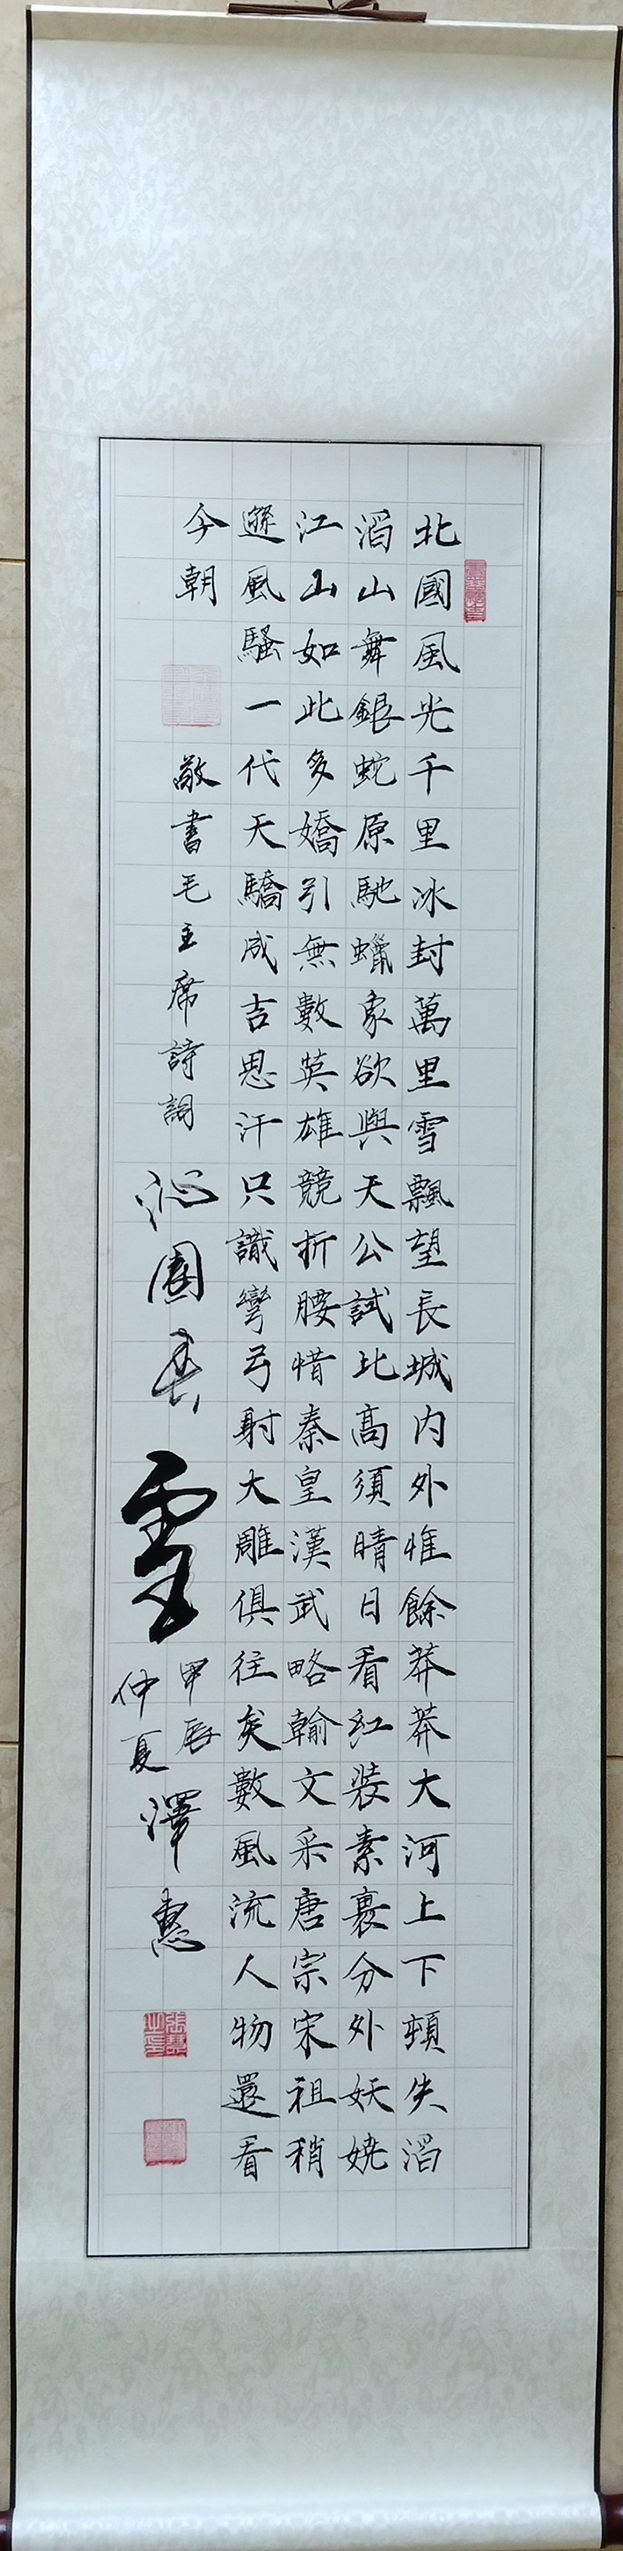 北國風光千里冰封萬里雪飄望長城内外惟餘莽莽大河上下頓失滔
滔山舞銀蛇原馳蠟象欲與天公試比高須晴日看紅裝素裹分外妖嬈
江山如此多嬌引無數英雄競折腰惜秦皇漢武略輸文采唐宗宋祖稍
遜風騷一代天驕成吉思汗只識彎弓射大雕俱往矣數風流人物還看
今朝 敬書毛主席詩詞 沁園春 雪
甲辰
仲夏
澤惠